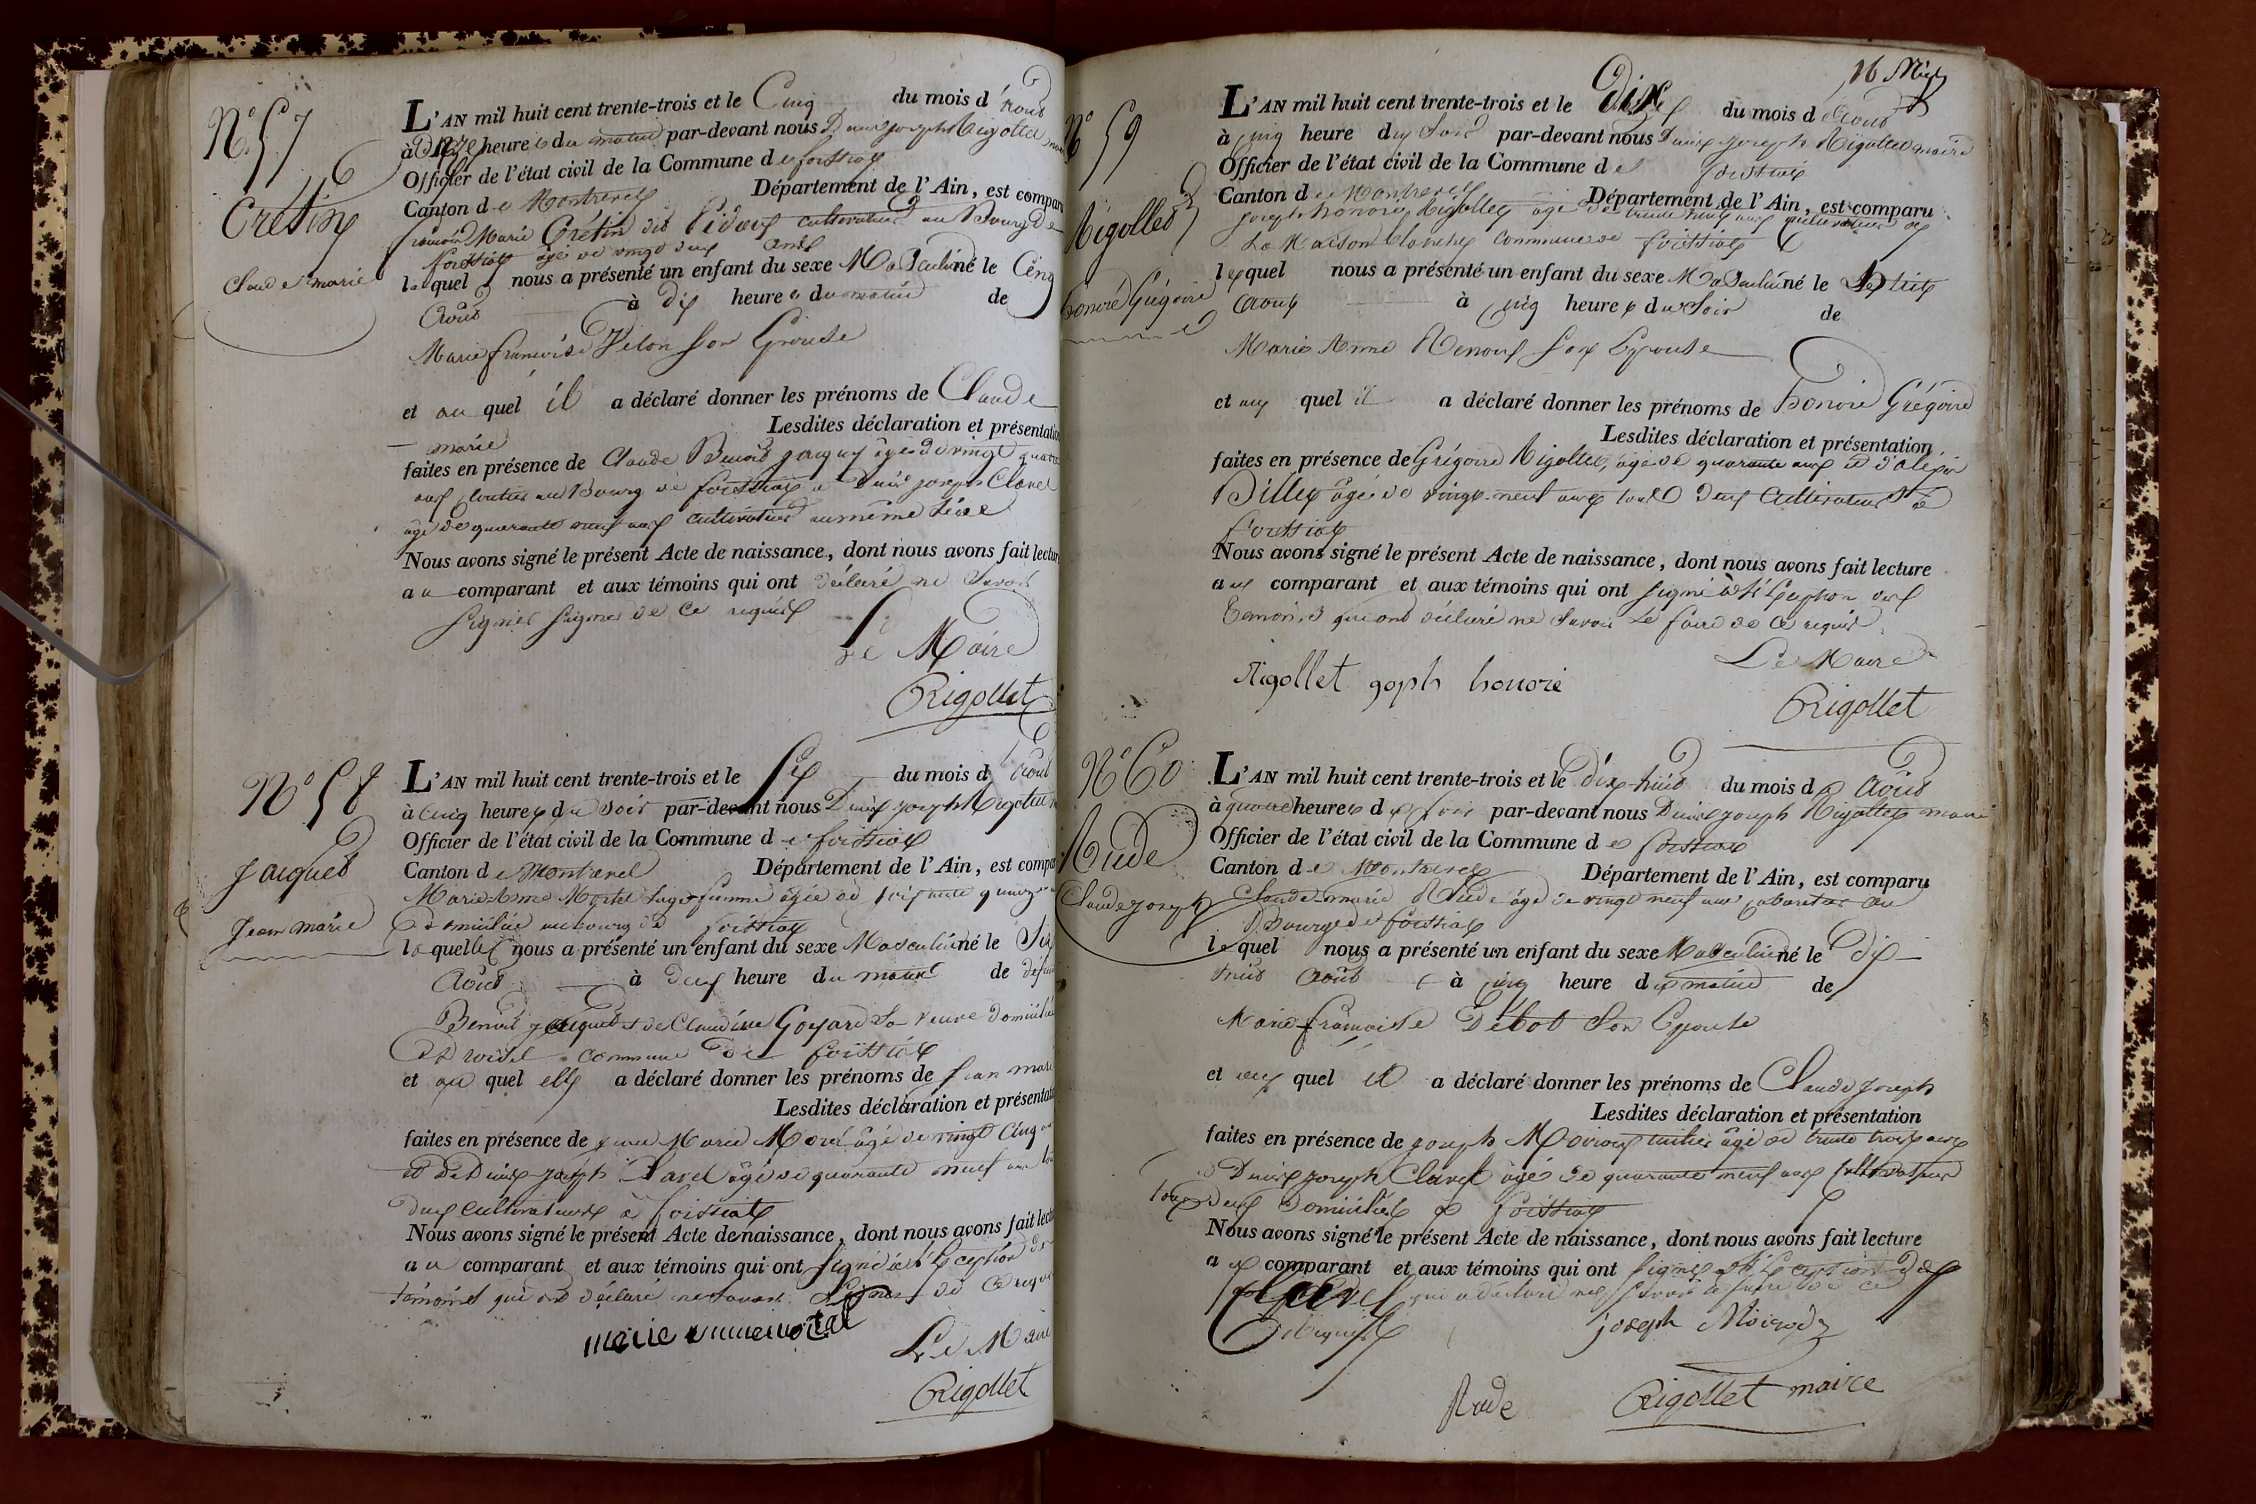 N° 57
Cretin
Claude marie
L'AN mil huit cent trente-trois et le Cinq du mois d'août
à onze heures du matin par-devant nous Denis joseph Rigollet maire
Officier de l'état civil de la Commune de foissiat
Canton de Montrevel Département de l'Ain, est comparu
Marie Cretin dit cultivateur au Bourg de
foissiat agé de vingt deux ans
lequel nous a présenté un enfant du sexe Masculin né le Cinq
août à dix heures du matin de
Marie françoise Velon son Epouse
et au quel il a déclaré donner les prénoms de Claude
marie Lesdites déclaration et présentation
faites en présence de Claude Benoit âgé de vingt quatre
ans au Bourg de foissiat et Denis joseph Clavel
âgé de quarante neuf ans cultivateur au même lieu
Nous avons signé le présent Acte de naissance, dont nous avons fait lecture
au comparant et aux témoins qui ont déclaré ne savoir
signer de ce requis
Le Maire
Rigollet
N° 58
Jacquet
Jean marie
L'AN mil huit cent trente-trois et le Six du mois d'août
à Cinq heures du soir par-devant nous Denis joseph Rigollet
Officier de l'état civil de la Commune de foissiat
Canton de Montrevel Département de l'Ain, est comparu
Marie Anne Mortel sage femme âgée de soixante quinze
domiciliée au bourg de foissiat
laquelle nous a présenté un enfant du sexe Masculin né le Six
août à deux heure du matin de defunt
Benoit jacquet et de Claudine Goyard sa veuve domiciliée
commune de foissiat
et au quel elle a déclaré donner les prénoms de jean marie
Lesdites déclaration et présentation
faites en présence de Marie Morel âgé de vingt Cinq ans
et de Denis joseph Clavel âgé de quarante neuf ans tous
deux cultivateurs à foissiat
Nous avons signé le présent Acte de naissance, dont nous avons fait lecture
au comparant et aux témoins qui ont signé à l'Exception des
témoins qui ont déclaré ne savoir signer de ce requis
marie anne mortal
Le Maire
Rigollet
N° 59
Rigollet
honoré Grégoire
L'AN mil huit cent trente-trois et le Dix du mois d'août
à cinq heure du Soir par-devant nous Denis joseph Rigollet maire
Officier de l'état civil de la Commune de foissiat
Canton de Montrevel Département de l'Ain, est comparu
joseph honoré Rigollet âgé de trente huit ans cultivateur
La Maison Blanche commune de foissiat
lequel nous a présenté un enfant du sexe Masculin né le
août à cinq heures du Soir de
Marie Anne Renoud son Epouse
et au quel il a déclaré donner les prénoms de honoré Grégoire
Lesdites déclaration et présentation
faites en présence de Grégoire Rigollet, âgé de quarante ans et d'alexis
Billet âgé de vingt-neuf ans tous deux cultivateurs à
foissiat
Nous avons signé le présent Acte de naissance, dont nous avons fait lecture
au comparant et aux témoins qui ont signé à l'Exception des
témoins qui ont déclaré ne savoir le faire de ce requis
Le Maire
Rigollet goph honoré
Rigollet
N° 60
Rude
Claude joseph
L'AN mil huit cent trente-trois et le dix huit du mois d'août
à quatre heures du soir par-devant nous Denis joseph Rigollet maire
Officier de l'état civil de la Commune de foissiat
Canton de Montrevel Département de l'Ain, est comparu
Claude marie Rude âgé de vingt neuf ans cabaretier au
Bourg de foissiat
lequel nous a présenté un enfant du sexe Masculin né le dix
huit août à cinq heure du matin de
Marie françoise Debot son Epouse
et au quel il a déclaré donner les prénoms de Claude joseph
Lesdites déclaration et présentation
faites en présence de joseph Moiroud âgé de trente trois ans
et Denis joseph Clavel âgé de quarante neuf ans Cultivateur
tous deux domiciliés à foissiat
Nous avons signé le présent Acte de naissance, dont nous avons fait lecture
au comparant et aux témoins qui ont signé à l'Exception de
Clavel qui a déclaré ne savoir le faire de ce
requis
joseph Moiroud
Rude
Rigollet maire